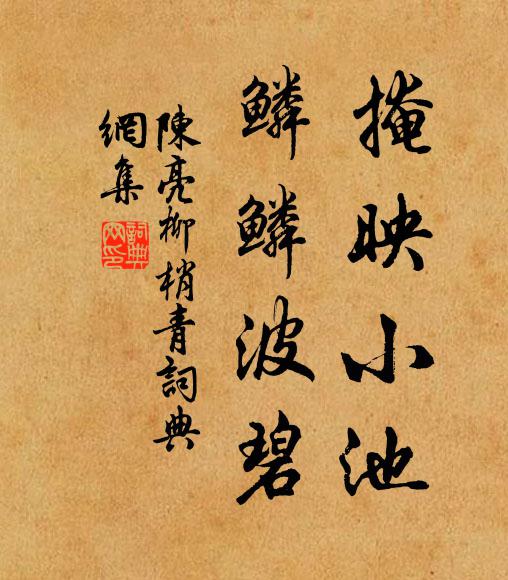 掩映小池
鱗鱗波碧
陳亮柳梢青詞典
網集
詞典网印